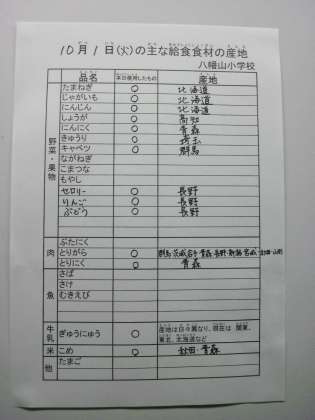 10月1日(火)の主な給食食材の産地
八幡山小学校
品名 本日使用したもの 産地
野菜・果物
たまねぎ ○ 北海道
じゃがいも ○ 北海道
にんじん ○ 北海道
しょうが ○ 高知
にんにく ○ 青森
きゅうり ○ 埼玉
キャベツ ○ 群馬
ながねぎ
こまつな
もやし
セロリー ○ 長野
りんご ○ 長野
ぶどう ○ 長野
肉
ぶたにく
とりがら ○ 群馬・茨城・岩手・青森・長野・新潟・宮城
とりにく ○ 青森
魚
さば
さけ
むきえび
牛乳 ぎゅうにゅう ○ 産地は日々異なり、現在は 関東、
東北、北海道など
米 こめ ○ 秋田・青森
他 たまご